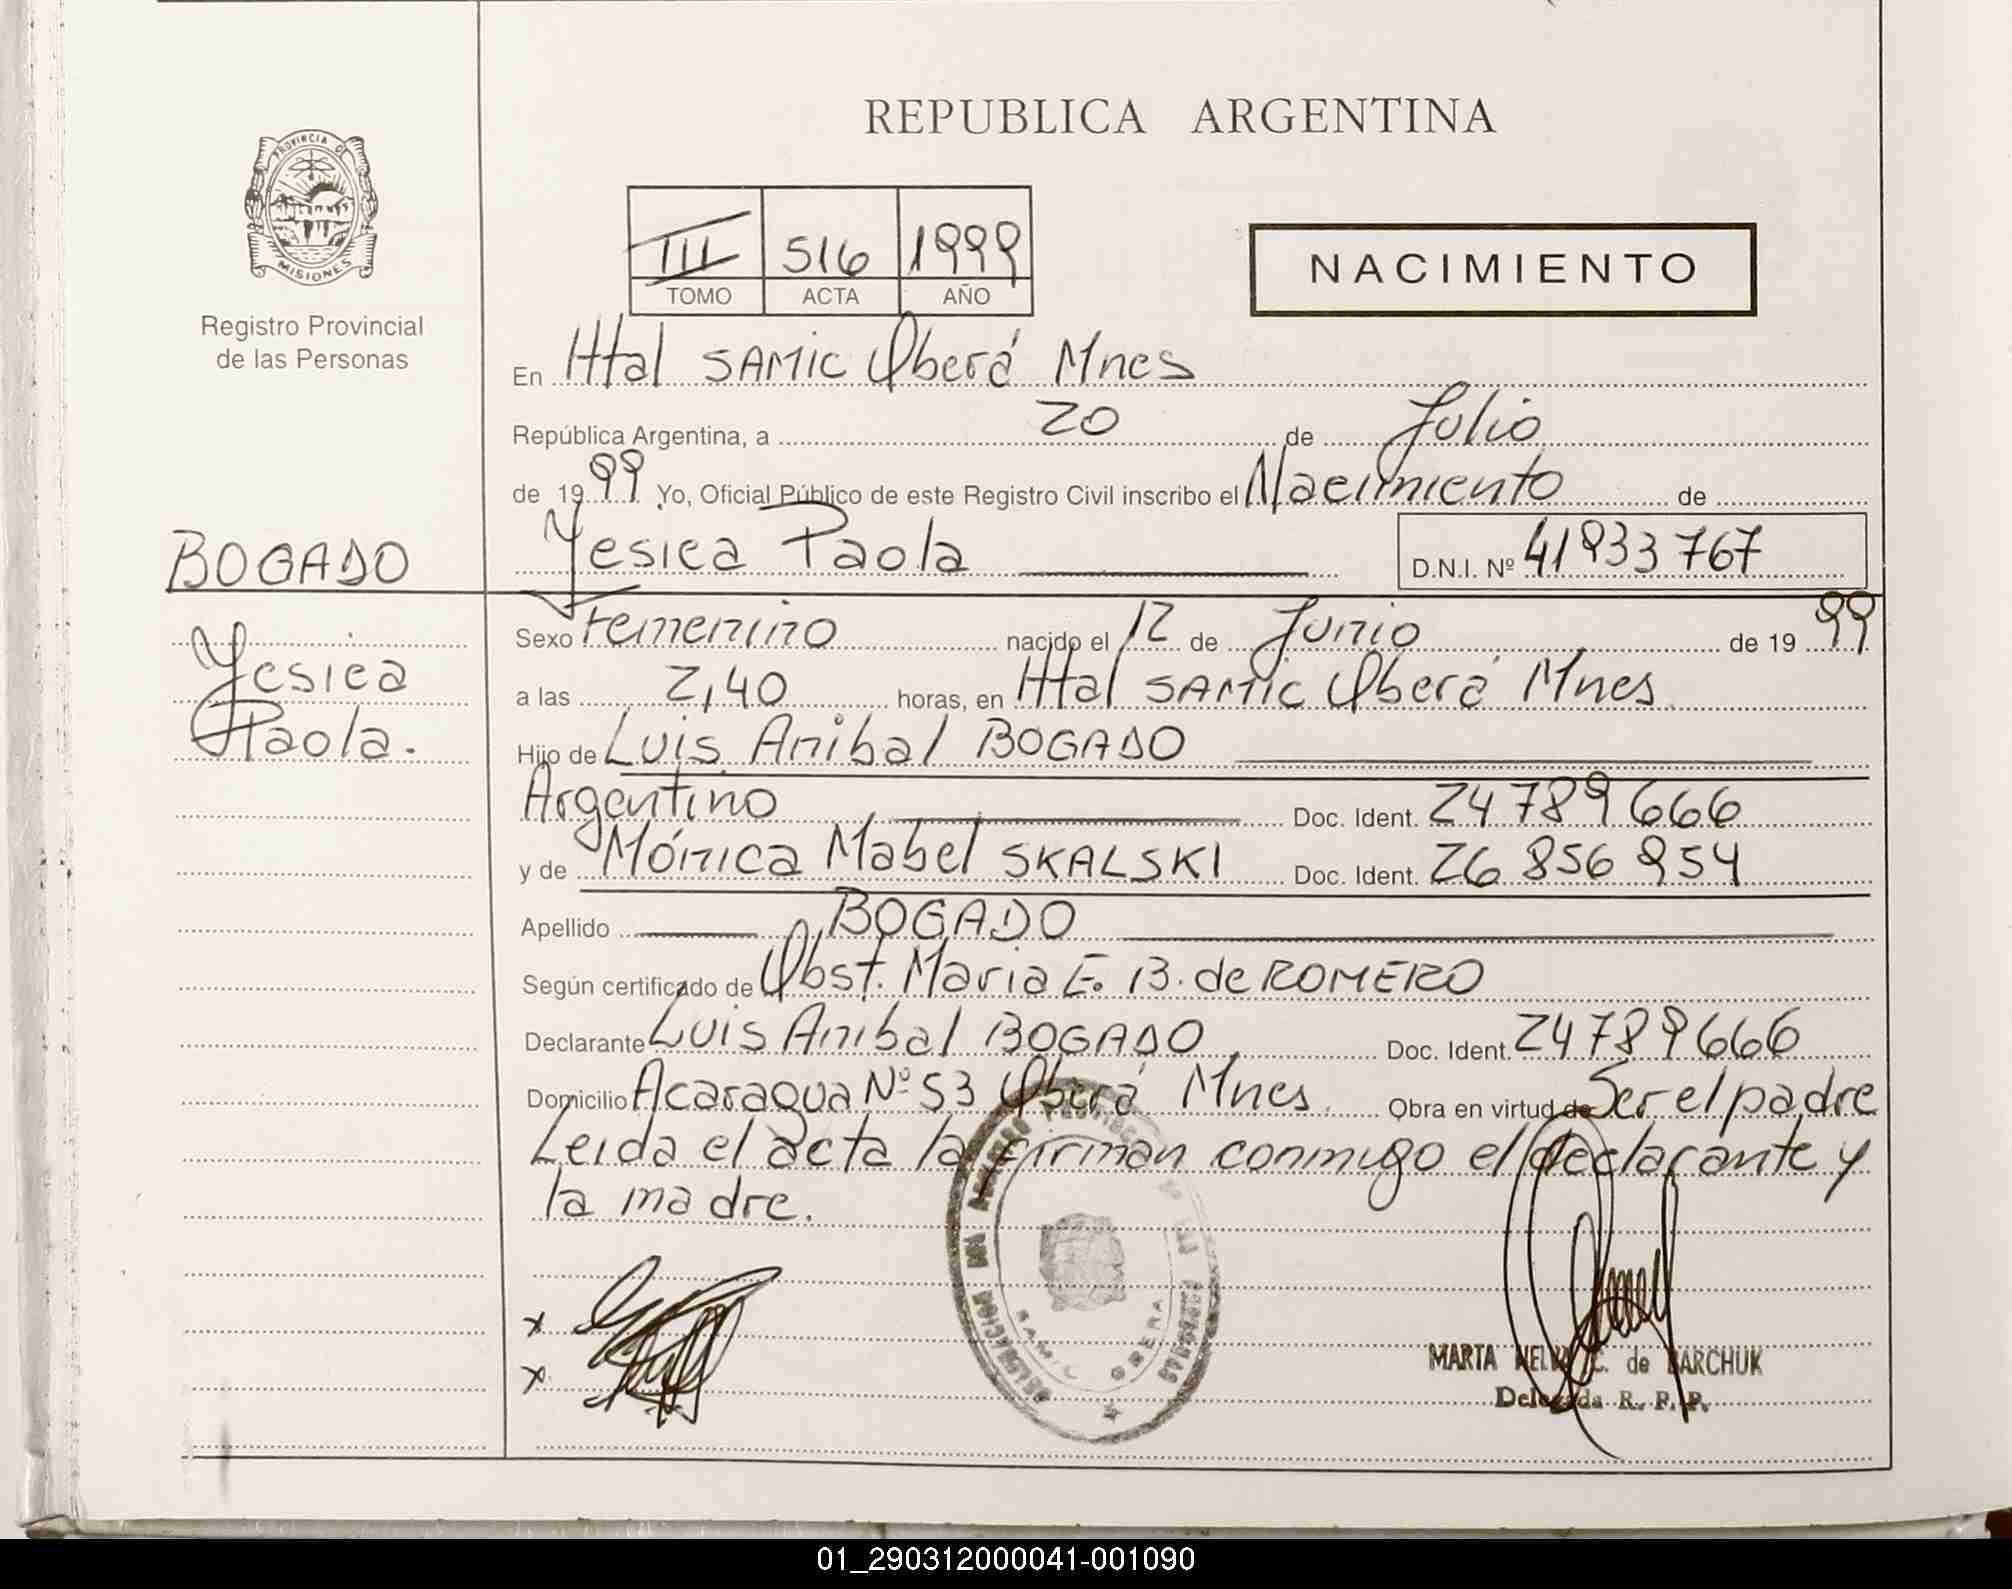 REPUBLICA ARGENTINA
PROVINCIA DE
MISIONES
Registro Provincial
de las Personas
III 516 1999
TOMO ACTA AÑO
NACIMIENTO
En Htal SAMIC Oberá Mnes
República Argentina, a 20 de Julio
de 1999 Yo, Oficial Público de este Registro Civil inscribo el Nacimiento de
BOGADO
Yesica Paola
D.N.I. Nº 41933767
Yesica
Paola.
Sexo Femenino nacido el 12 de Junio de 1999
a las 2,40 horas, en Htal SAMIC Oberá Mnes
Hijo de Luis Anibal BOGADO
Argentino Doc. Ident. 24789666
y de Mónica Mabel SKALSKI Doc. Ident. 26856954
Apellido BOGADO
Según certificado de Obst. Maria E. B. de ROMERO
Declarante Luis Anibal BOGADO Doc. Ident. 24789666
Domicilio Acaragua Nº 53 Oberá Mnes Obra en virtud de Ser el padre
Leida el acta la firman conmigo el declarante y
la madre.
x
x
DELEGACION DEL REGISTRO DE LAS PERSONAS
S.A.M.I.C. OBERA
MARTA C. de BARCHUK
Delegada R. P. P.
01_290312000041-001090